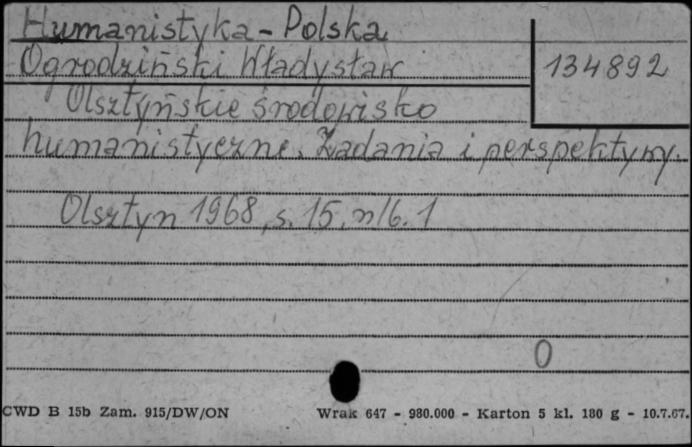 Humanistyka - Polska
Ogrodziński Władysław
134892
Olsztyńskie środowisko
humanistyczne. Zadania i perspektywy.
Olsztyn 1968, s. 15, nlb. 1
0
CWD B 15b Zam. 915/DW/ON Wrak 647 - 980.000 - Karton 5 kl. 180 g - 10.7.67.